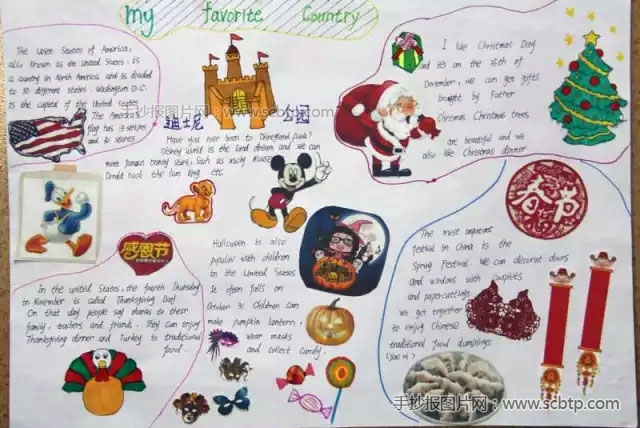 my favorite Country
The Unite States of America,
also known as the United States, is
a country in North America and is divided
to 50 different states. Washington D.C.
is the capital of the United States
The America's
flag has 13 stripes
and 50 states
迪士尼 公园
Have you ever been to Disneyland Park?
Disney World is the land dream and we can
meet famous Disney stars, Such as Micky Mouse
the lion king etc
I like Christmas Day
and it's on the 25th of
December, we can get gifts
bought by Father
Chrismas Christmas trees
are beautiful and we
also like Christmas dinner
感恩节
In the united States, the fourth Thursday
in November is called Thanksgiving Day
On that day people say thanks to their
family, teachers and friend. They can enjoy
Thanksgiving dinner and Turkey is traditional
food.
Halloween is also
popular with children
in the United States
It often falls on
October 31 Children can
make pumpkin lantern,
wear masks
and collect candy.
春节
The most important
festival in China is the
Spring Festival. We can decorat doors
and windows with couplets
and paper-cuttings
we get together
to enjoy Chinese
traditional food dumplings
(Jiao zi)
手抄报图片网:www.scbtp.com
手抄报图片网:www.scbtp.com